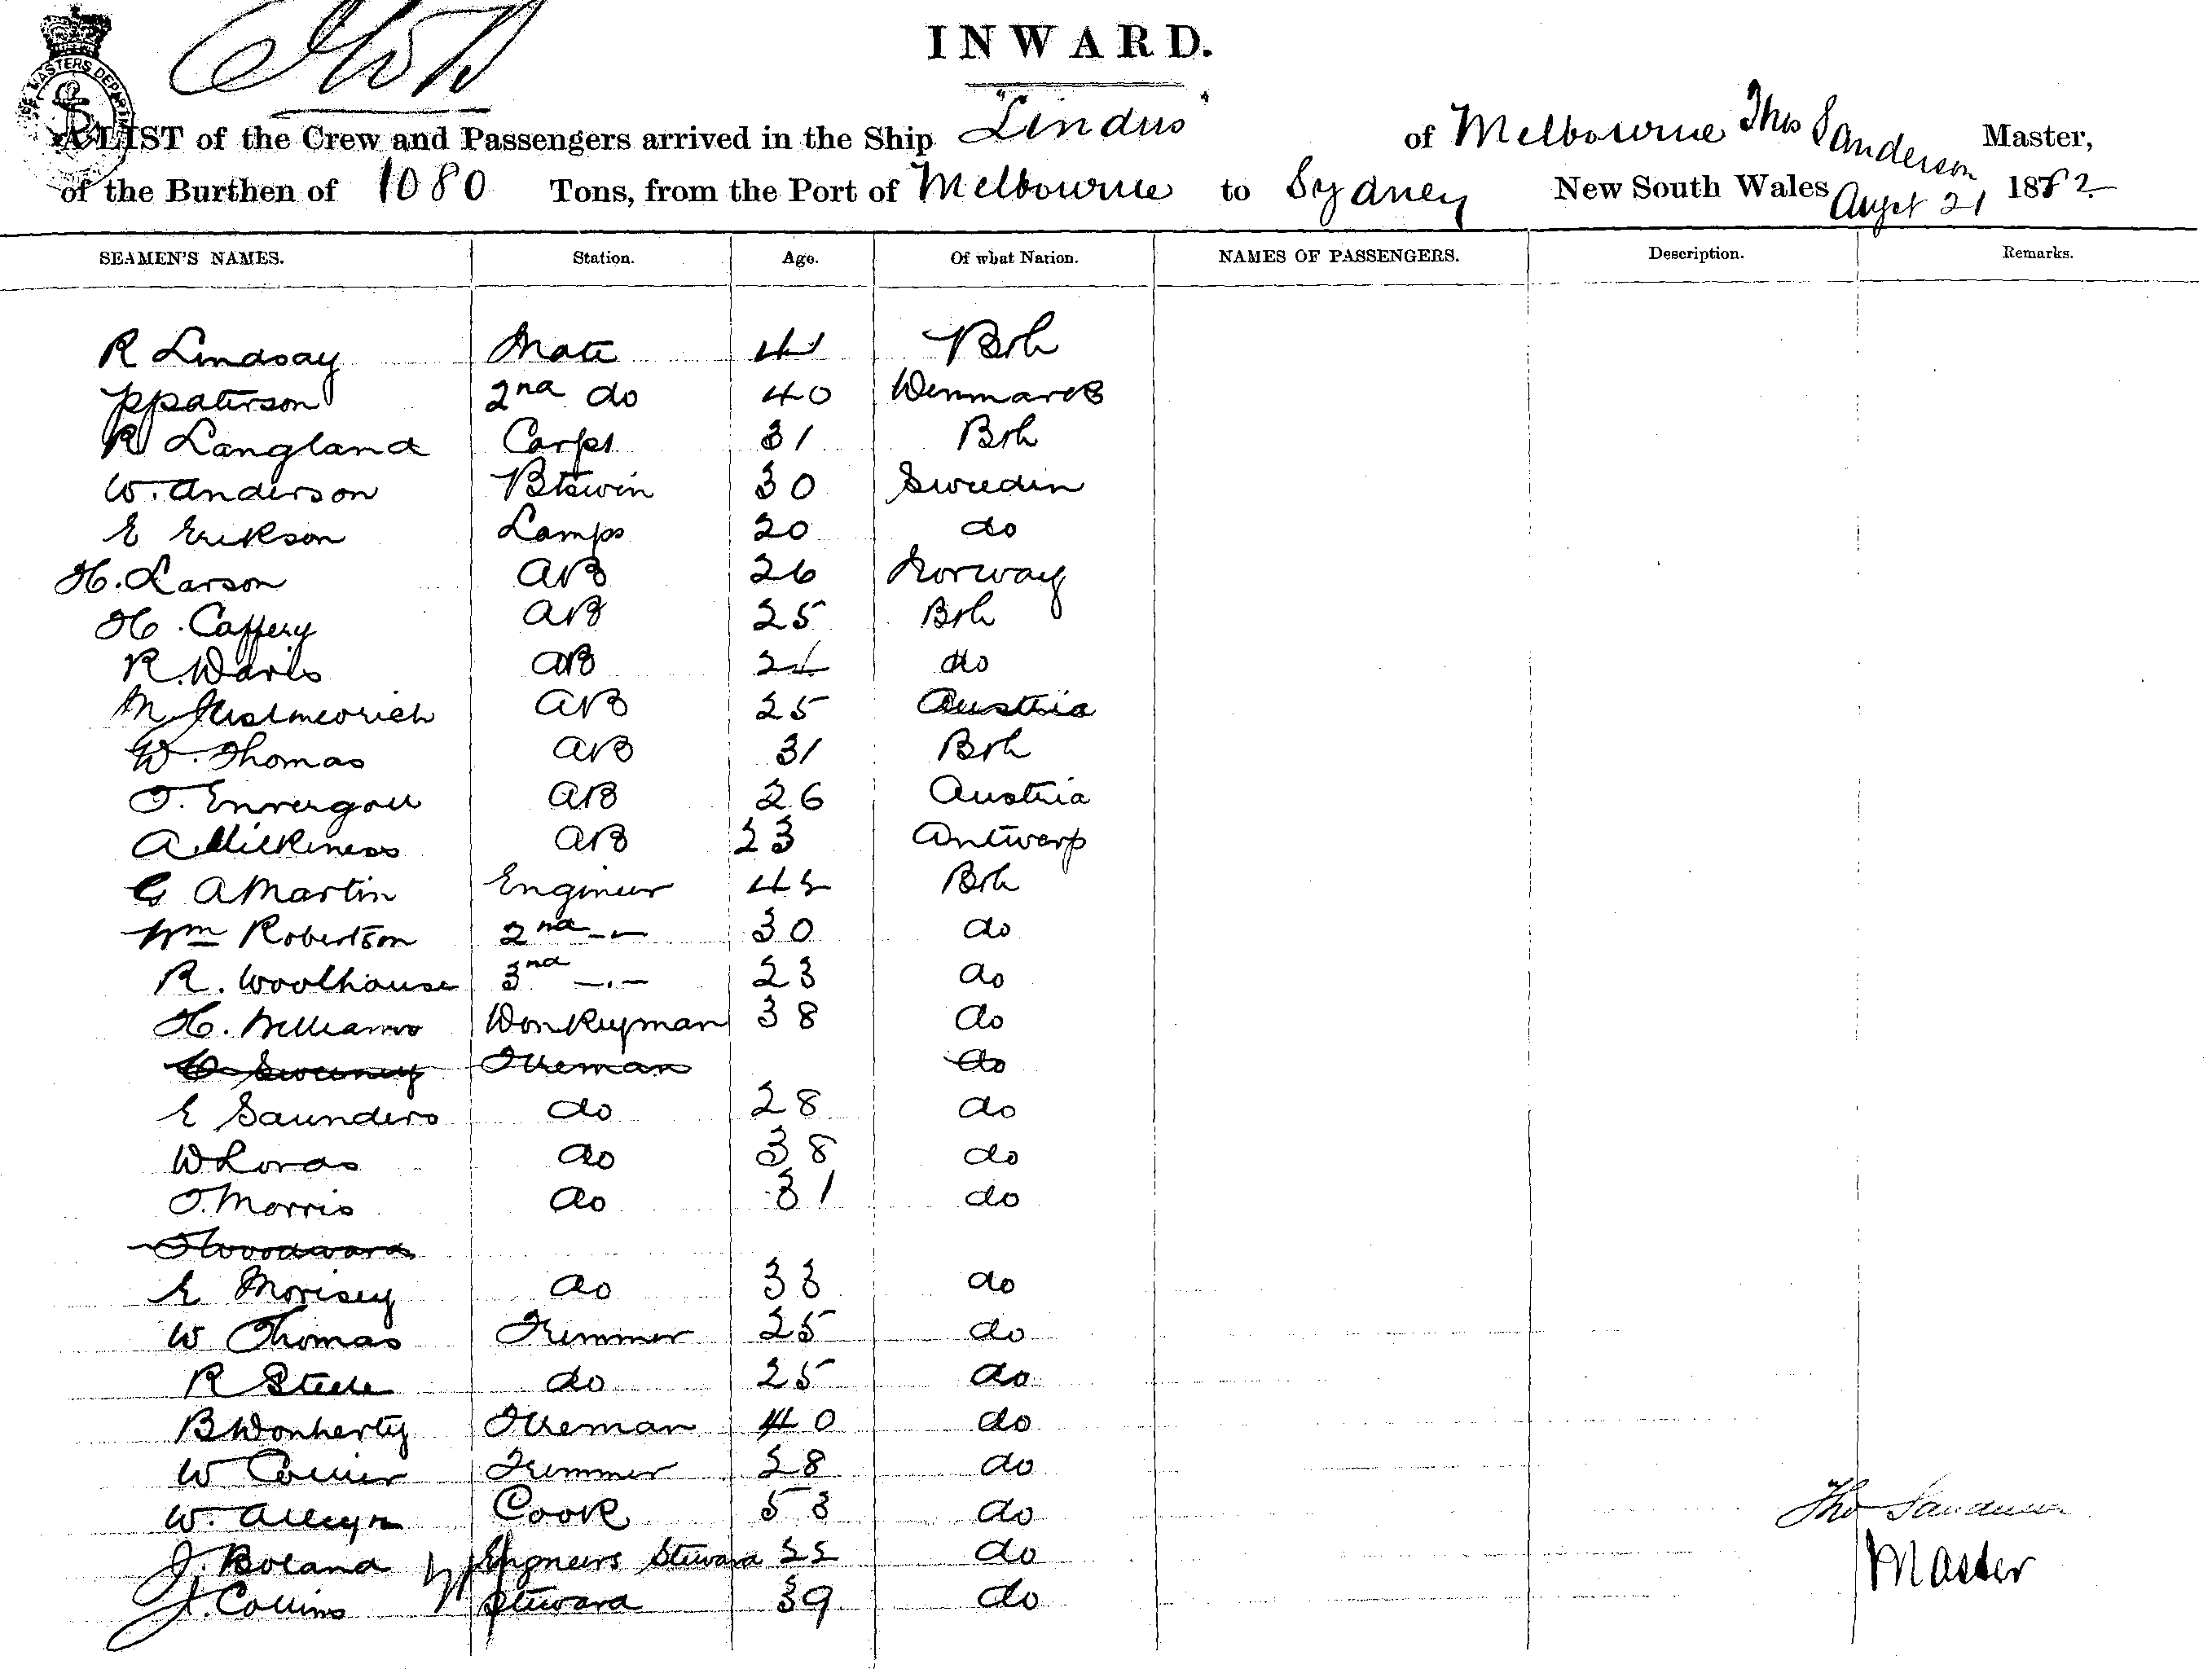 INWARD.
A LIST of the Crew and Passengers arrived in the Ship "Lindus" of Melbourne Thos Sanderson Master,
of the Burthen of 1080 Tons, from the Port of Melbourne to Sydney New South Wales Augst 21 1882
SEAMEN'S NAMES. Station. Age. Of what Nation. NAMES OF PASSENGERS. Description. Remarks.
R Lindsay Mate 41 Brh
P Paterson 2nd do 40 Denmark
R Langland Carpt 31 Brh
W. Anderson Btswin 30 Sweedin
E Erikson Lamps 20 do
H. Larson AB 26 Norway
H. Caffery AB 25 Brh
R. Davis AB 24 do
M AB 25 Austria
W. Thomas AB 31 Brh
AB 26 Austria
A. AB 23 Antwerp
G A Martin Engineer 45 Brh
Wm Robertson 2nd 30 do
R. Woolhouse 3nd 23 do
H. Williams Donkeyman 38 do
Sweeney Fireman do
E Saunders do 28 do
W Lords do 38 do
T. Morris do 31 do
T Woodward
E Morisey do 33 do
W Thomas Trimmer 25 do
R Steele do 25 do
B Donherty Fireman 40 do
W Trimmer 28 do
W. Alleyn Cook 53 do
J. Boland Engneers Steward 22 do
J. Collins Steward 39 do
Tho Sanderson
Master